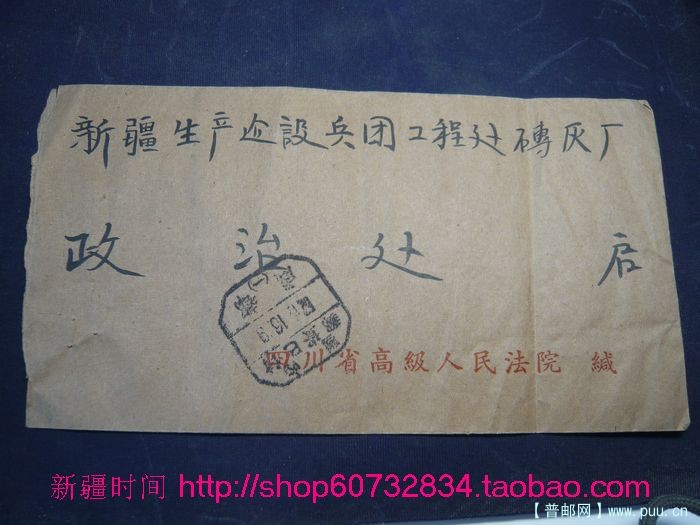 新疆生产建設兵团工程处磚灰厂
政治处 启
四川省高級人民法院 緘
新疆时间 http://shop60732834.taobao.com
【普邮网】www.puu.cn